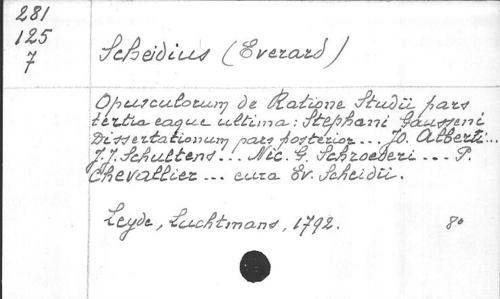 281
125
7
Scheidius (Everard)
Opusculorum de Ratione Studii pars
tertia eaque ultima: Stephani Gausseni
Dissertationum pars posterior... Jo. Alberti...
J.J. Schultens... Nic. G. Schroederi... P.
Chevallier... cura Ev. Scheidii.
Leyde, Luchtmans, 1792. 8o